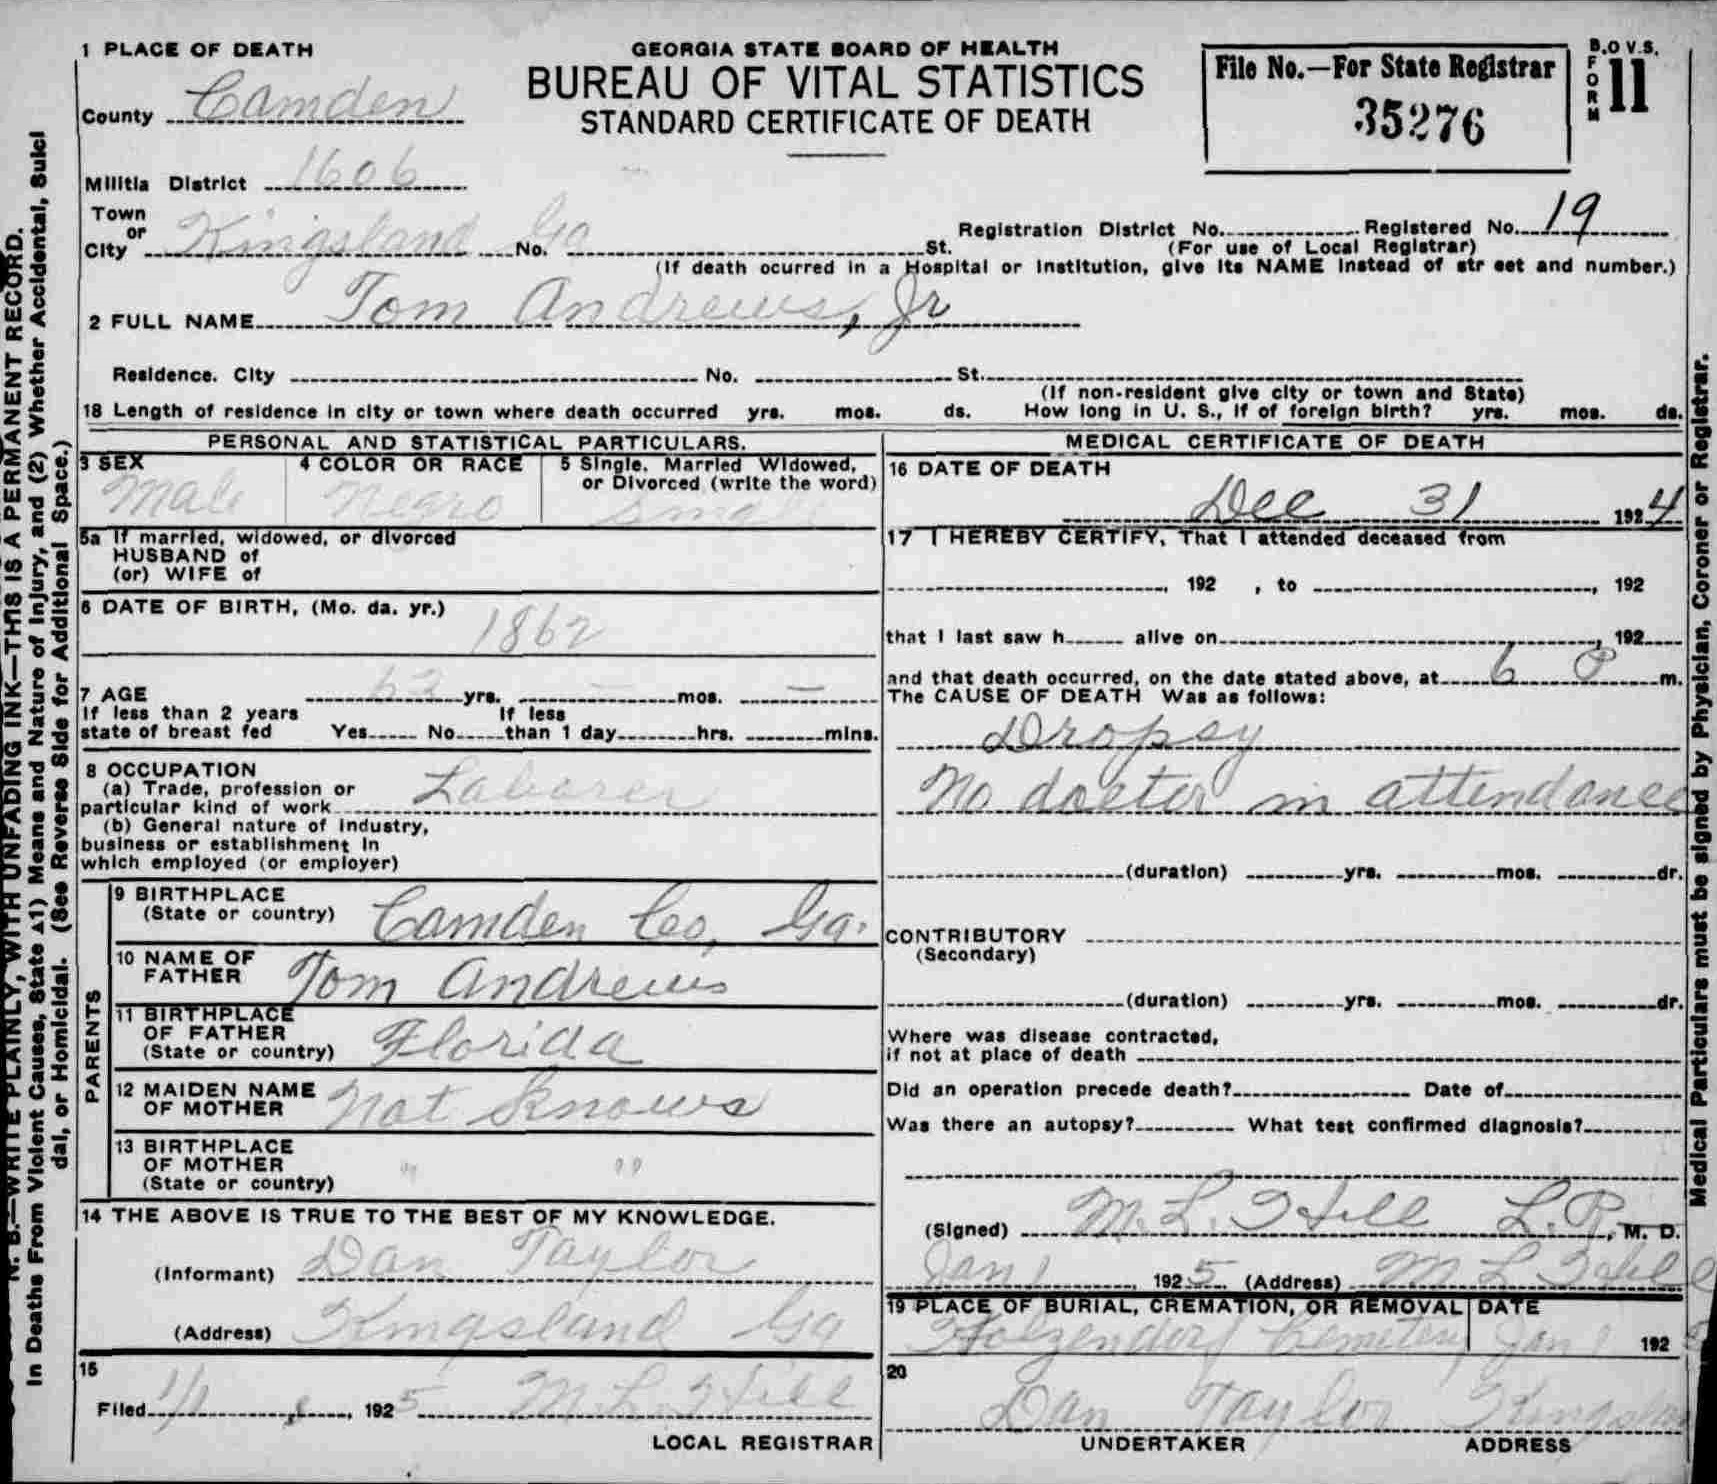 1 PLACE OF DEATH
County Camden
Militia District 1606
Town or City Kingsland Ga No. St.
GEORGIA STATE BOARD OF HEALTH
BUREAU OF VITAL STATISTICS
STANDARD CERTIFICATE OF DEATH
File No.—For State Registrar
35276
B.O V.S.
FORM 11
Registration District No. Registered No. 19
(For use of Local Registrar)
(If death ocurred in a Hospital or Institution, give its NAME instead of str eet and number.)
2 FULL NAME Tom Andrews, Jr
Residence. City No. St.
(If non-resident give city or town and State)
18 Length of residence in city or town where death occurred yrs. mos. ds. How long in U. S., if of foreign birth? yrs. mos. ds.
PERSONAL AND STATISTICAL PARTICULARS.
3 SEX
Male
4 COLOR OR RACE
Negro
5 Single, Married Widowed,
or Divorced (write the word)
5a If married, widowed, or divorced
HUSBAND of
(or) WIFE of
6 DATE OF BIRTH, (Mo. da. yr.)
1862
7 AGE 62 yrs. — mos. —
If less than 2 years If less
state of breast fed Yes No than 1 day hrs. mins.
8 OCCUPATION
(a) Trade, profession or
particular kind of work Laborer
(b) General nature of industry,
business or establishment in
which employed (or employer)
PARENTS
9 BIRTHPLACE
(State or country) Camden Co, Ga.
10 NAME OF
FATHER Tom Andrews
11 BIRTHPLACE
OF FATHER
(State or country) Florida
12 MAIDEN NAME
OF MOTHER Not Knows
13 BIRTHPLACE
OF MOTHER " "
(State or country)
14 THE ABOVE IS TRUE TO THE BEST OF MY KNOWLEDGE.
(Informant) Dan Taylor
(Address) Kingsland Ga
15
Filed 1/1, 1925 M. L. Hill
LOCAL REGISTRAR
MEDICAL CERTIFICATE OF DEATH
16 DATE OF DEATH
Dec 31 1924
17 I HEREBY CERTIFY, That I attended deceased from
, 192 , to , 192
that I last saw h alive on , 192
and that death occurred, on the date stated above, at 6 P m.
The CAUSE OF DEATH Was as follows:
Dropsy
No doctor in attendance
(duration) yrs. mos. dr.
CONTRIBUTORY
(Secondary)
(duration) yrs. mos. dr.
Where was disease contracted,
if not at place of death
Did an operation precede death? Date of
Was there an autopsy? What test confirmed diagnosis?
(Signed) M. L. Hill L. R., M. D.
Jan 1, 1925 (Address) M L Hill
19 PLACE OF BURIAL, CREMATION, OR REMOVAL DATE
Holzendorf Cemetery Jan 1 192
20
Dan Taylor Kingsland
UNDERTAKER ADDRESS
N. B.—WRITE PLAINLY, WITH UNFADING INK—THIS IS A PERMANENT RECORD.
In Deaths From Violent Causes, State (1) Means and Nature of Injury, and (2) Whether Accidental, Suici
dal, or Homicidal. (See Reverse Side for Additional Space.)
Medical Particulars must be signed by Physician, Coroner or Registrar.